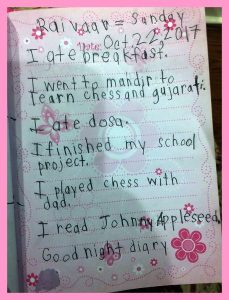 Raivaar = Sunday
Date: Oct 22, 2017
I ate breakfast.
I went to mandir to
learn chess and gujarati.
I ate dosa.
I finished my school
project.
I played chess with
dad.
I read Johnny Appleseed.
Good night diary